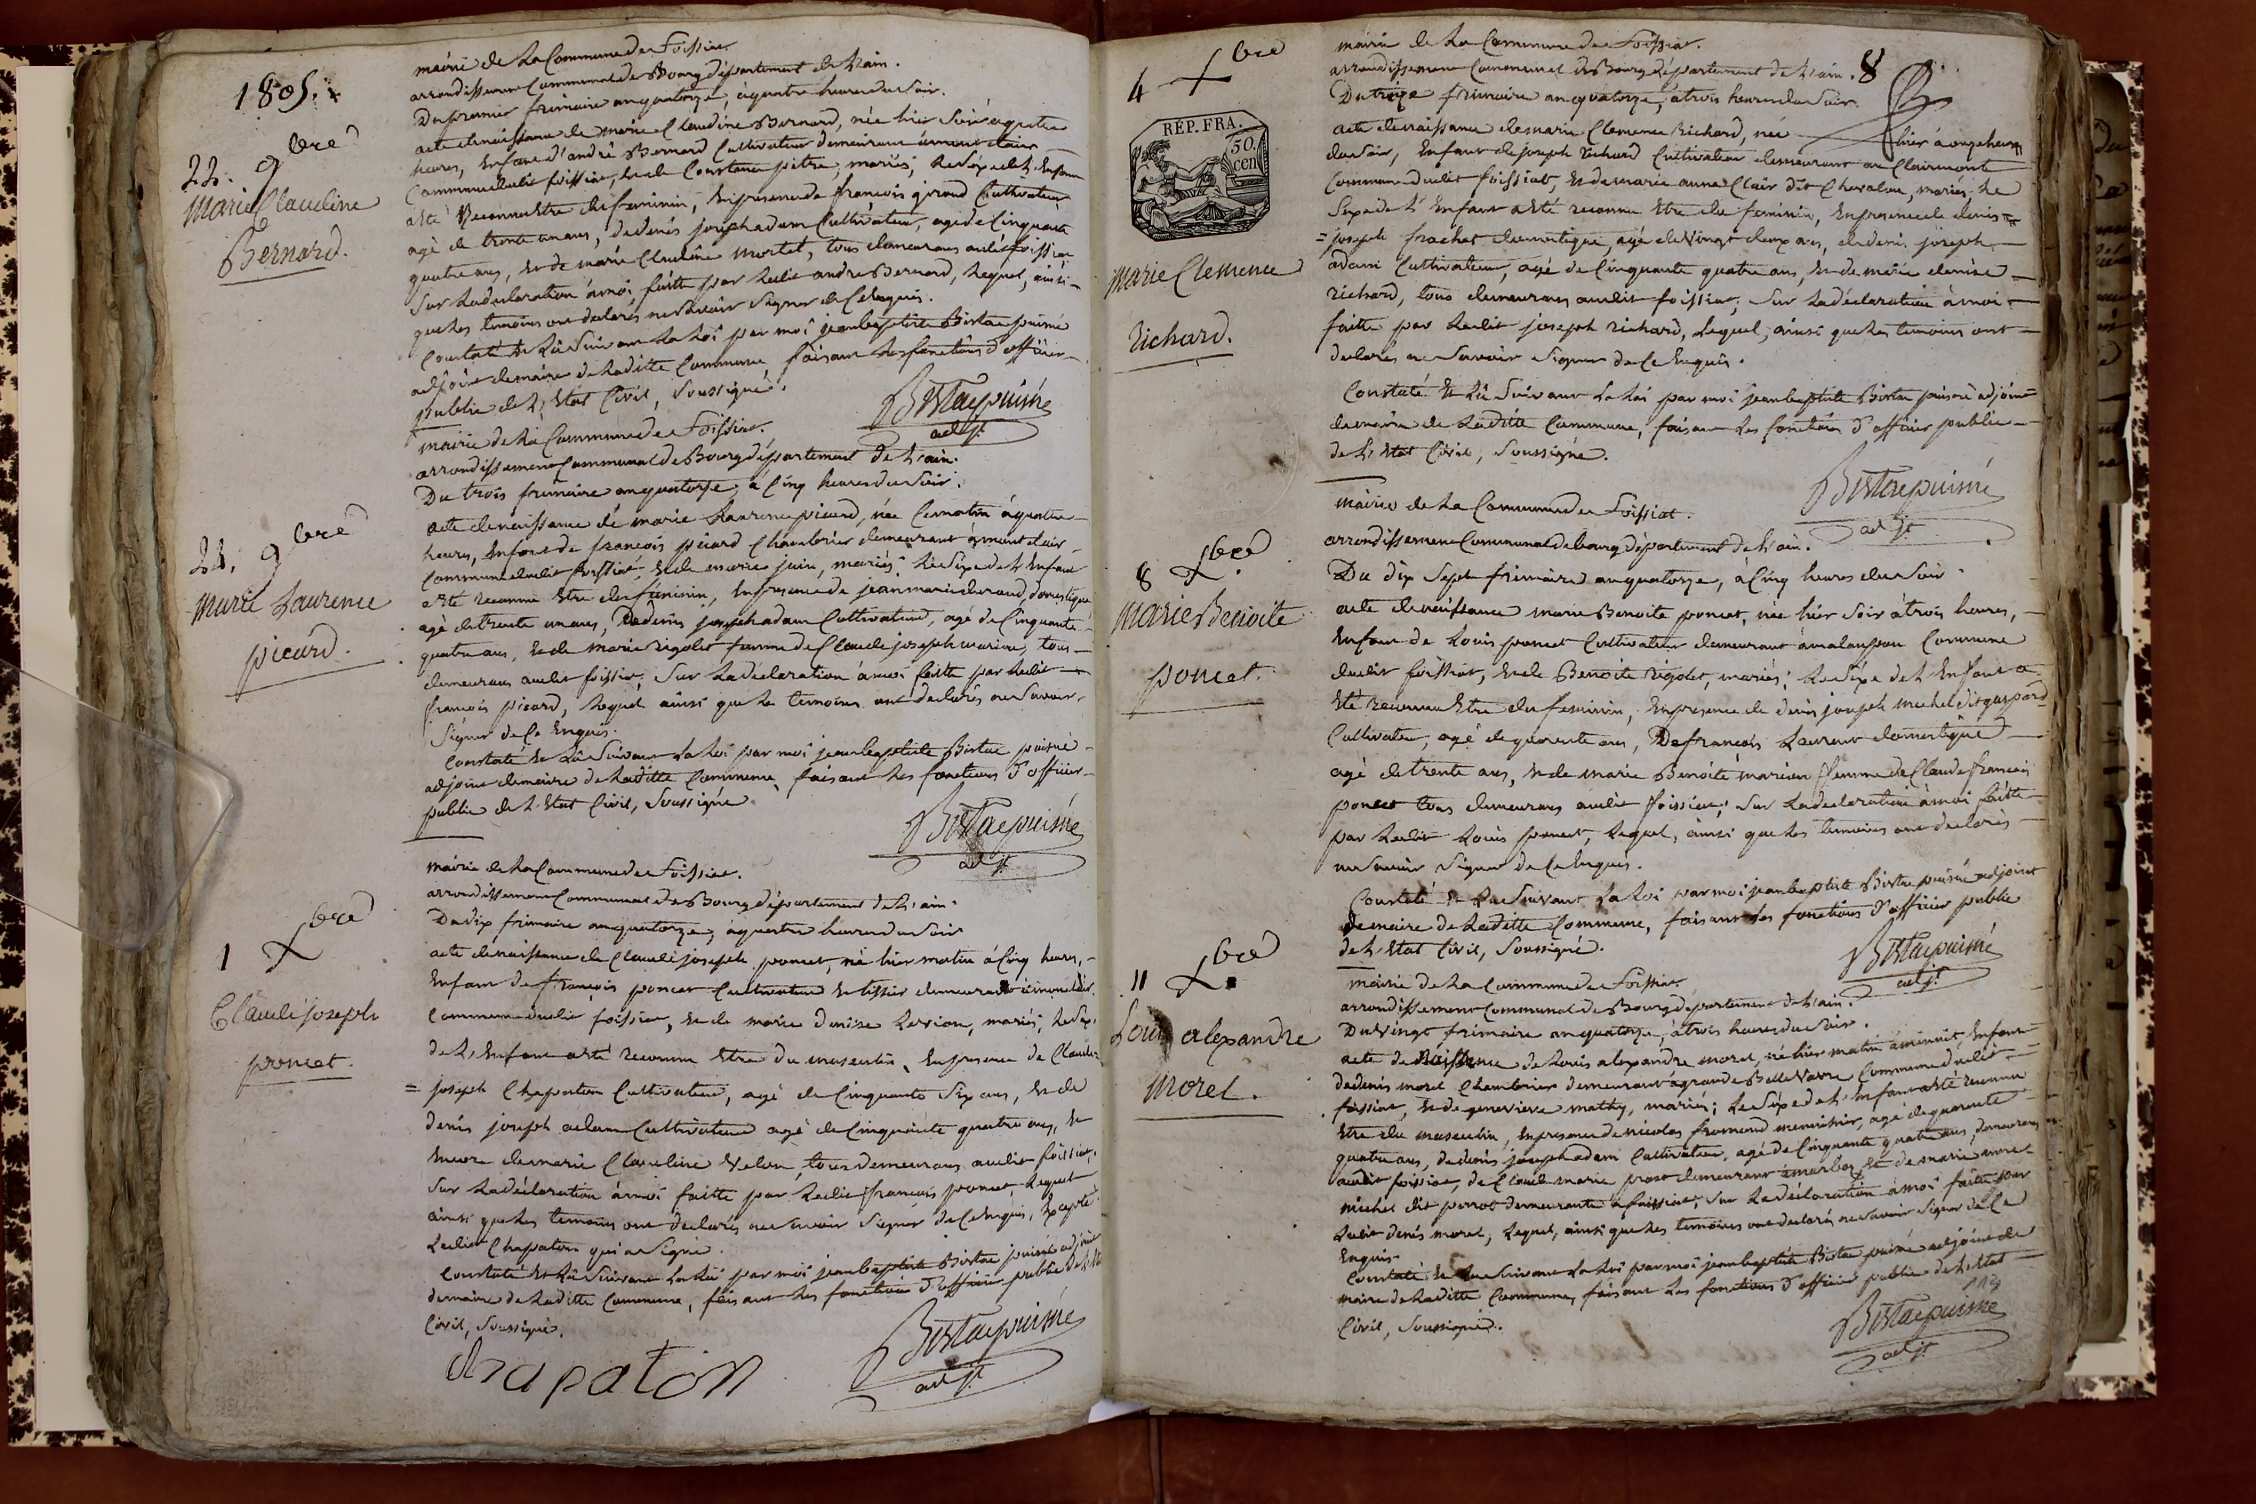 1805.
22. 9bre
Marie Claudine
Bernard.
mairie de La Commune de Foissiat.
arrondissement Communal de Bourg département de L'ain.
Du premier frimaire an quatorze, à quatre heures du Soir.
acte de naissance de marie Claudine Bernard, née hier Soir à quatre
heures, Enfant d'andré Bernard Cultivateur demeurant à mont clair
Commune dudit foissiat, et de Constance pitre, mariés; Le Sexe de L'Enfant
a Eté Reconnu Etre du feminin, En presence de françois girod Cultivateur
agé de trente un ans, de denis joseph adam Cultivateur, agé de Cinquante
quatre ans, et de marie Claudine mortel, tous demeurans audit foissiat
Sur La declaration à moi faitte par Ledit andre Bernard, Lequel, ainsi
que Les temoins ont declarés ne Savoir Signer de Ce Enquis.
Constaté Et Lû Suivant La Loi par moi jean baptiste Bistac puisné
adjoint de maire de Laditte Commune, faisant Les fonctions d'officier
public de L'Etat Civil, Soussigné.
Bistac puisné
adjt.
24. 9bre
Marie Laurence
picard.
mairie de La Commune de Foissiat.
arrondissement Communal de Bourg département de L'ain.
Du trois frimaire an quatorze, à Cinq heures du Soir.
acte de naissance de marie Laurence picard, née Ce matin à quatre
heures, Enfant de françois picard Chambrier demeurant à mont clair
Commune dudit foissiat, et de marie juin, mariés; Le Sexe de L'Enfant
a Eté reconnu Etre du feminin, En presence de jean marie durand, domestique
agé de trente un ans, De denis joseph adam Cultivateur, agé de Cinquante
quatre ans, et de marie rigolet femme de Claude joseph marion, tous
demeurans audit foissiat, Sur La déclaration à moi faitte par Ledit
françois picard, Lequel ainsi que Les temoins ont declarés ne Savoir
Signer de Ce Enquis.
Constaté et Lû Suivant La Loi par moi jean baptiste Bistac puisné
adjoint de maire de Laditte Commune, faisant Les fonctions d'officier
public de L'Etat Civil, Soussigné.
Bistac puisné
adjt.
1 Xbre
Claude joseph
poncet.
mairie de La Commune de Foissiat.
arrondissement Communal de Bourg département de L'ain.
Du dix frimaire an quatorze, à quatre heures du Soir
acte de naissance de Claude joseph poncet, né hier matin à Cinq heures,
Enfant de françois poncet Cultivateur et tissier demeurant à mont clair
Commune dudit foissiat, et de marie denise mariés; Le Sexe
de L'Enfant a Eté reconnu Etre du masculin, En presence de Claude
= joseph Chapaton Cultivateur, agé de Cinquante Six ans, et de
denis joseph adam Cultivateur agé de Cinquante quatre ans, et
encore de marie Claudine tous demeurans audit foissiat,
Sur La déclaration à moi faitte par Ledit françois poncet, Lequel
ainsi que Les temoins ont declarés ne Savoir Signer de Ce Enquis, Excepté
Ledit Chapaton qui a Signé.
Constaté et Lû Suivant La Loi par moi jean baptiste Bistac puisné adjoint
de maire de Laditte Commune, faisant Les fonctions d'officier public de L'Etat
Civil, Soussigné.
Chapaton
Bistac puisné
adjt.
8
4 Xbre
RÉP. FRA.
50
cen
Marie Clemence
Richard.
mairie de La Commune de Foissiat.
arrondissement Communal de Bourg département de L'ain.
Du treize frimaire an quatorze, à trois heures du Soir.
acte de naissance de marie Clemence Richard, née hier à onze heures
du Soir, Enfant de joseph richard Cultivateur demeurant au Clairmonte
Commune dudit foissiat, et de marie anne Clair dit Chevalon, mariés; Le
Sexe de L'Enfant a Eté reconnu Etre du feminin, En presence de denis
= joseph frachet domestique, agé de Vingt deux ans, de denis joseph
adam Cultivateur, agé de Cinquante quatre ans, et de marie denise
richard, tous demeurans audit foissiat, Sur La déclaration à moi
faitte par Ledit joseph richard, Lequel, ainsi que Les temoins ont
declarés ne Savoir Signer de Ce Enquis.
Constaté et Lû Suivant La Loi par moi jean baptiste Bistac puisné adjoint
de maire de Laditte Commune, faisant Les fonctions d'officier public
de L'Etat Civil, Soussigné.
Bistac puisné
adjt.
8 Xbre
Marie Benoite
poncet.
mairie de La Commune de Foissiat.
arrondissement Communal de bourg département de L'ain.
Du dix Sept frimaire an quatorze, à Cinq heures du Soir.
acte de naissance marie Benoite poncet, née hier Soir à trois heures,
Enfant de Louis poncet Cultivateur demeurant à Commune
dudit foissiat, et de Benoite rigolet, mariés; Le Sexe de L'Enfant a
Eté reconnu Etre du feminin, En presence de denis joseph michel dit gaspard
Cultivateur, agé de quarente ans, De francois Laurent domestique
agé de trente ans, et de marie Benoite marion femme de Claude francois
poncet tous demeurans audit foissiat; Sur La declaration à moi faitte
par Ledit Louis poncet, Lequel, ainsi que Les temoins ont declarés
ne Savoir Signer de Ce Enquis.
Constaté et Lû Suivant La Loi par moi jean baptiste Bistac puisné adjoint
de maire de Laditte Commune, faisant Les fonctions d'officier public
de L'Etat Civil, Soussigné.
Bistac puisné
adjt.
11 Xbre
Louis alexandre
Morel.
mairie de La Commune de Foissiat.
arrondissement Communal de Bourg département de L'ain.
Du Vingt frimaire an quatorze, à trois heures du Soir.
acte de Naissance de Louis alexandre morel, né hier matin à minuit, Enfant
de denis morel Chambrier demeurant à grande Belle Vavre Commune dudit
foissiat, et de genevieve mathy, mariés; Le Sexe de L'Enfant a Eté reconnu
Etre du masculin, En presence de nicolas fromond menuisier, agé de quarente
quatre ans, de denis joseph adam Cultivateur, agé de Cinquante quatre ans, demeurans
audit foissiat, de Claude marie prost demeurant à marboz, et de marie anne
michel dit perrot demeurante à foissiat; Sur La déclaration à moi faitte par
Ledit denis morel, Lequel, ainsi que Les temoins ont declarés ne Savoir Signer de Ce
Enquis.
Constaté et Lû Suivant La Loi par moi jean baptiste Bistac puisné adjoint de
maire de Laditte Commune, faisant Les fonctions d'officier public de L'Etat
Civil, Soussigné.
Bistac puisné
adjt.